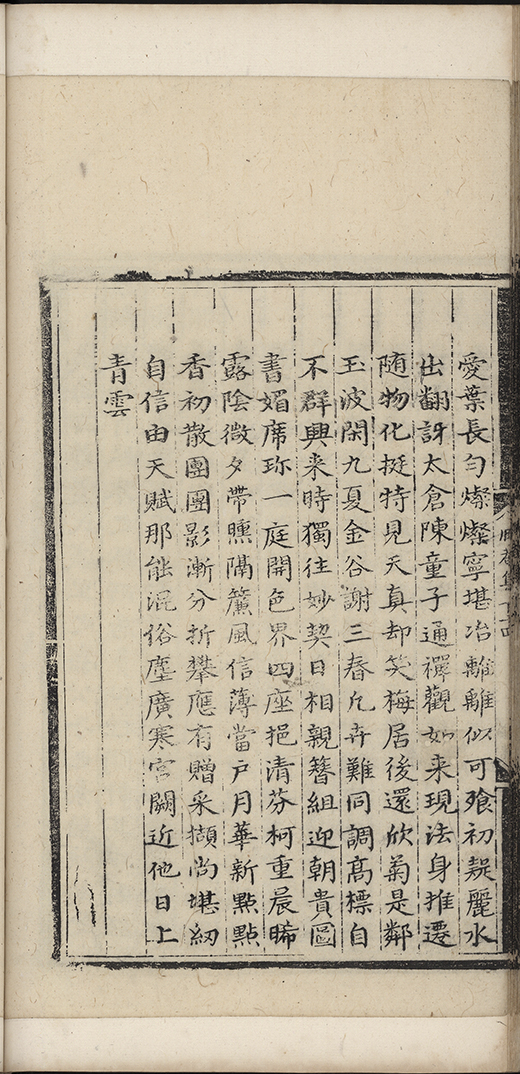 愛葉長勻燦燦寧堪冶離離似可飱初疑麗水
出翻訝太倉陳童子通禪觀如来現法身推遷
随物化挺特見天真却笑梅居後還欣菊是鄰
玉波閑九夏金谷謝三春凢卉難同調髙標自
不群興来時獨往妙契日相親簪組迎朝貴圖
書媚席珎一庭開色界四座挹清芬柯重晨晞
露陰微夕帶曛隔簾風信薄當戶月華新點點
香初散團團影漸分折攀應有贈采擷尚堪紉
自信由天賦那能混俗塵廣寒宮闕近他日上
青雲